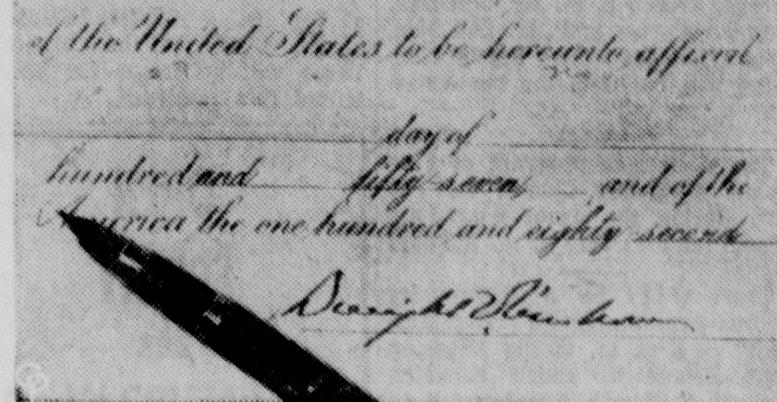 of the United States to be hereunto affixed
day of
hundred and fifty seven, and of the
America the one hundred and eighty second
Dwight D Eisenhower